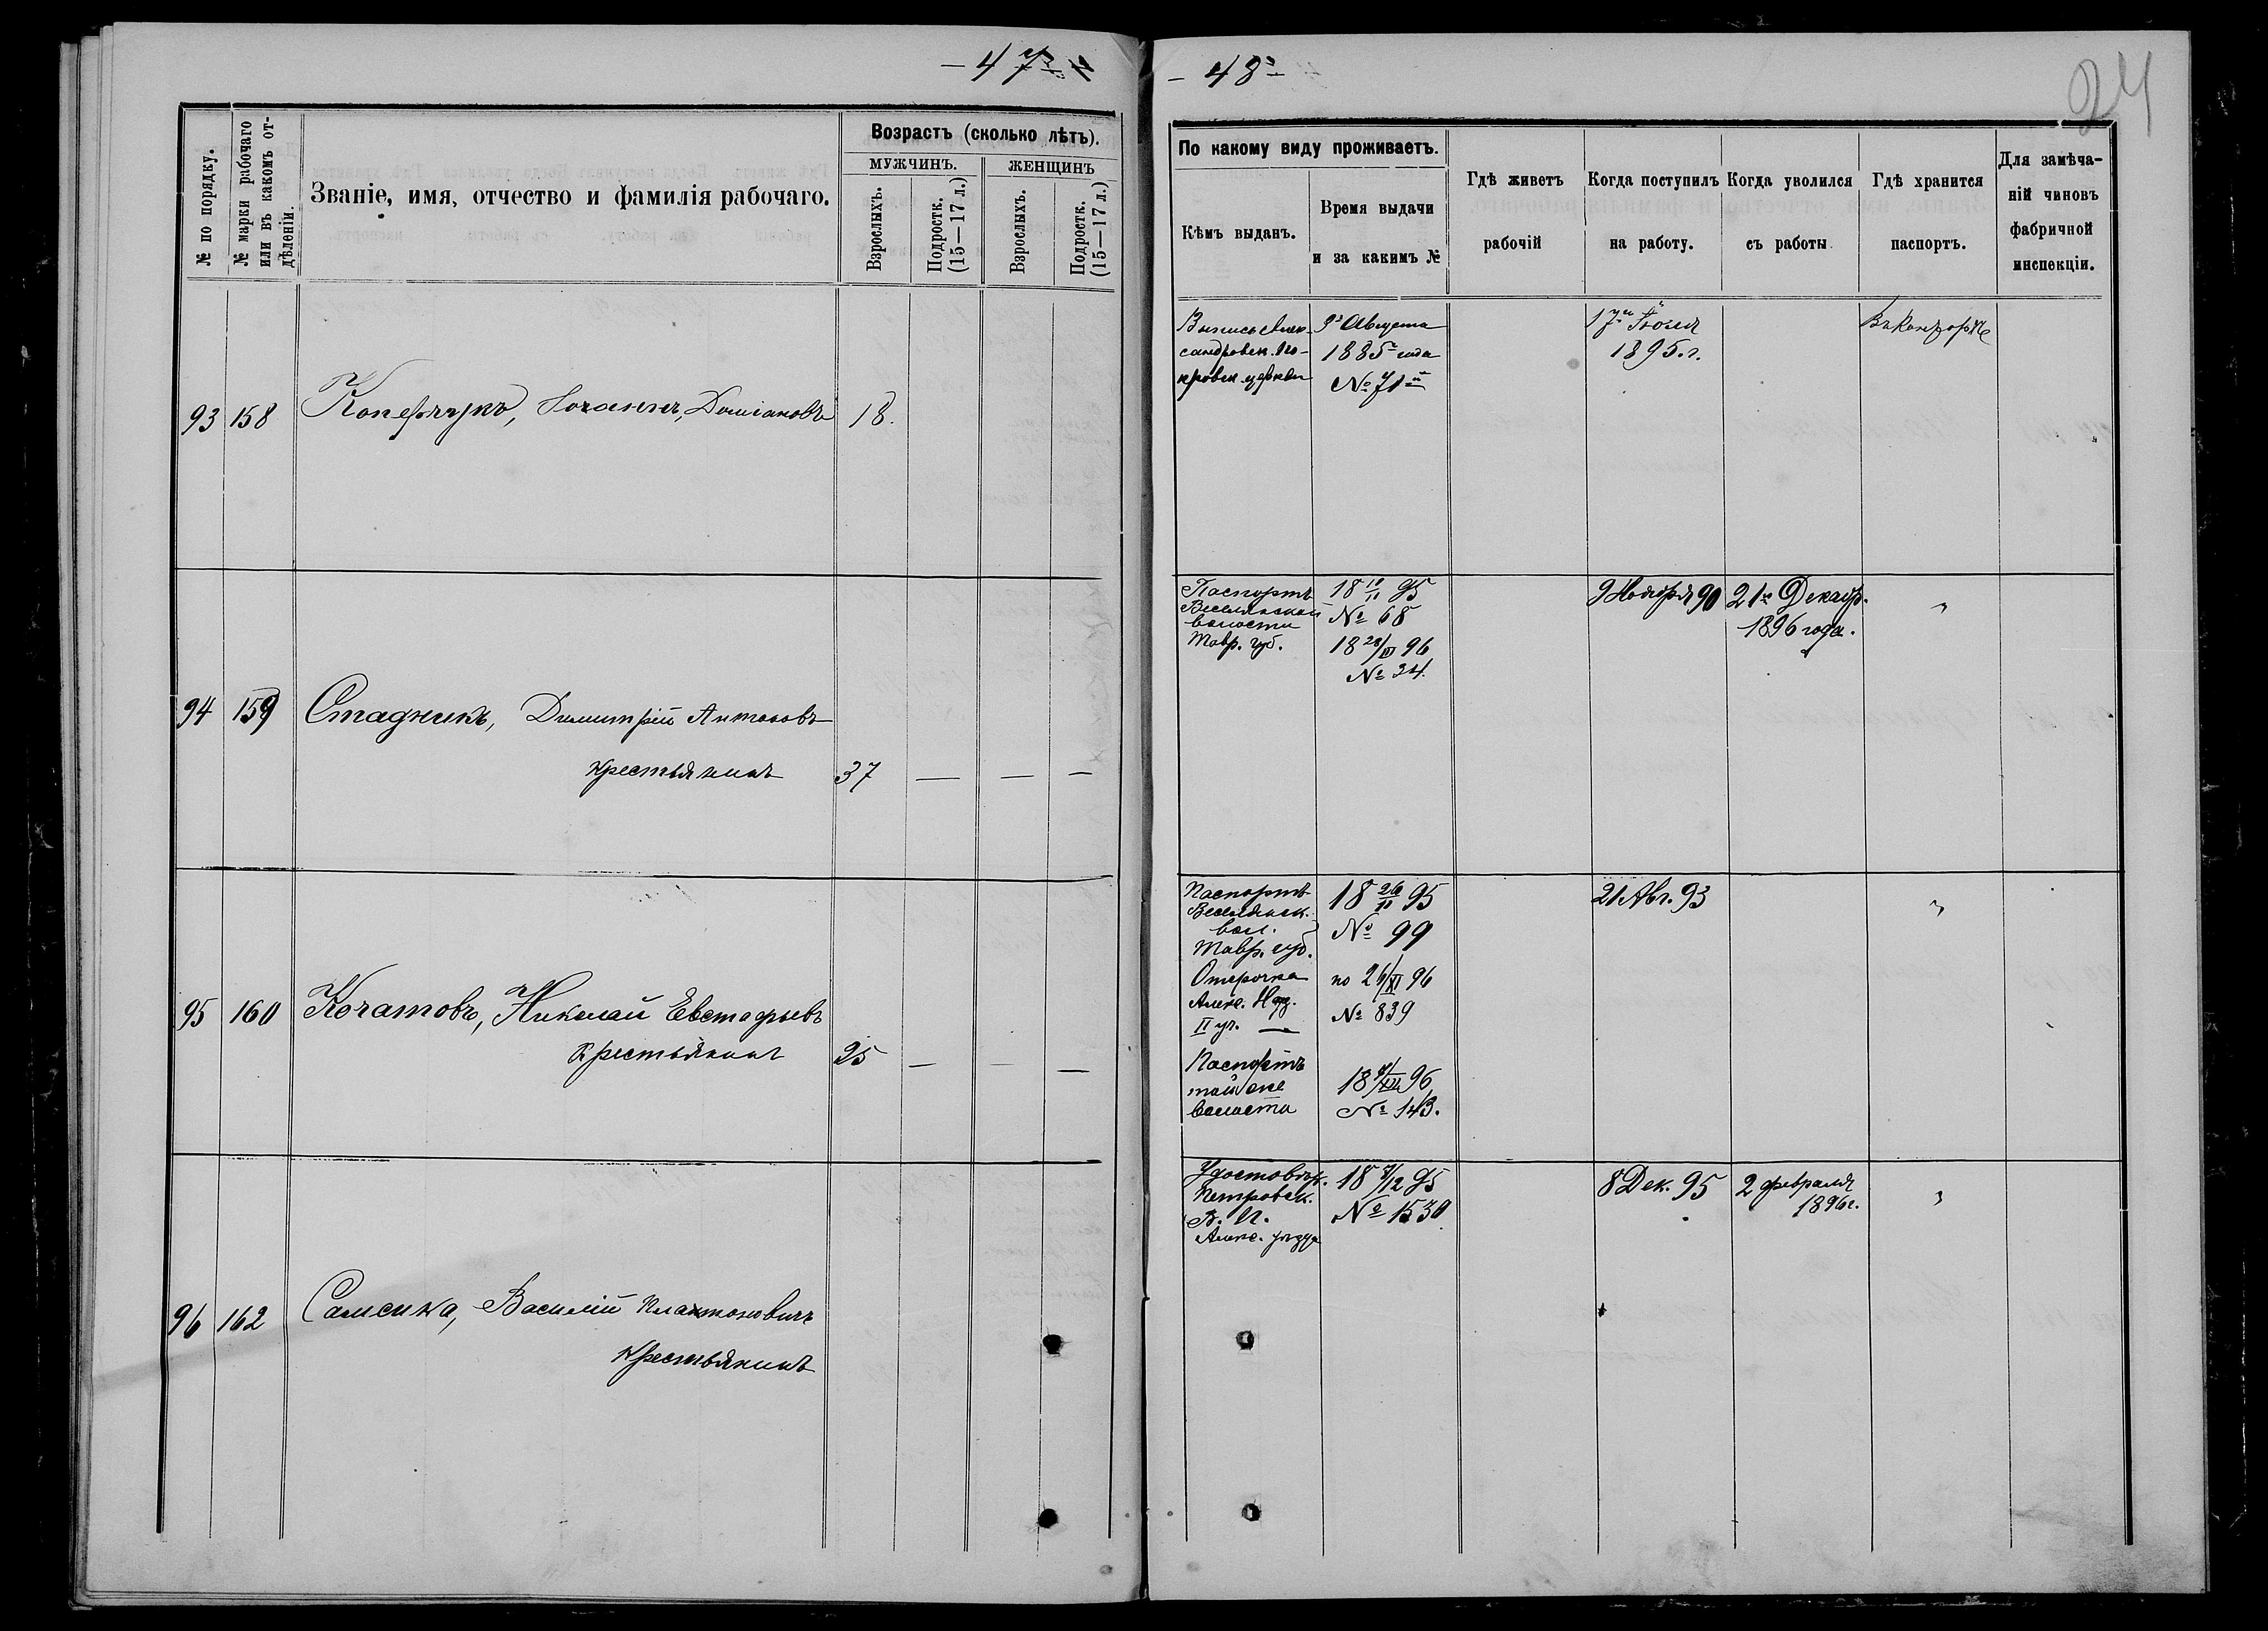 — 47 —
— 48 —
24
№ по порядку.
№ марки рабочаго или въ какомъ от-
дѣленіи.
Званіе, имя, отчество и фамилія рабочаго.
Возрастъ (сколько лѣтъ).
МУЖЧИНЪ.
ЖЕНЩИНЪ
Взрослыхъ.
Подростк.
(15—17 л.)
Взрослыхъ.
Подростк.
(15—17 л.)
По какому виду проживаетъ.
Кѣмъ выданъ.
Время выдачи
и за какимъ №
Гдѣ живетъ
рабочій
Когда поступилъ
на работу.
Когда уволился
съ работы
Гдѣ хранится
паспортъ.
Для замѣча-
ній чиновъ
фабричной
инспекціи.
93 158 Іоаннъ, Доміановъ 18.
Выпись Алек-
сандровск. По-
кровск. церкви
9го Августа
1885го года
№ 71й
17го Іюля
1895.г.
Въ Конторѣ
94 159 Стадникъ, Димитрій Антоновъ
крестьянинъ 37 — — —
Паспортъ
Веселянской
волости
Тавр. губ.
18 10/11 95
№ 68
18 28/XI 96
№ 34.
9 Ноября 90
21го Декабр.
1896 года.
"
95 160 Кочатовъ, Николай Евстафьевъ
крестьянинъ 25 — — —
Паспортъ
Веселянск.
вол.
Тавр. губ.
Отсрочка
Алекс.
II уч. —
Паспортъ
той же
волости
18 26/11 95
№ 99
по 26/XI 96
№ 839
№ 143.
21 Авг. 93
"
96 162 Самсика, Василій Платоновичъ
крестьянинъ
Удостовѣр.
Петровск.
В. П.
Алекс. уѣзда
18 7/12 95
№ 1530
8 Дек. 95
2 февраля
1896г.
"